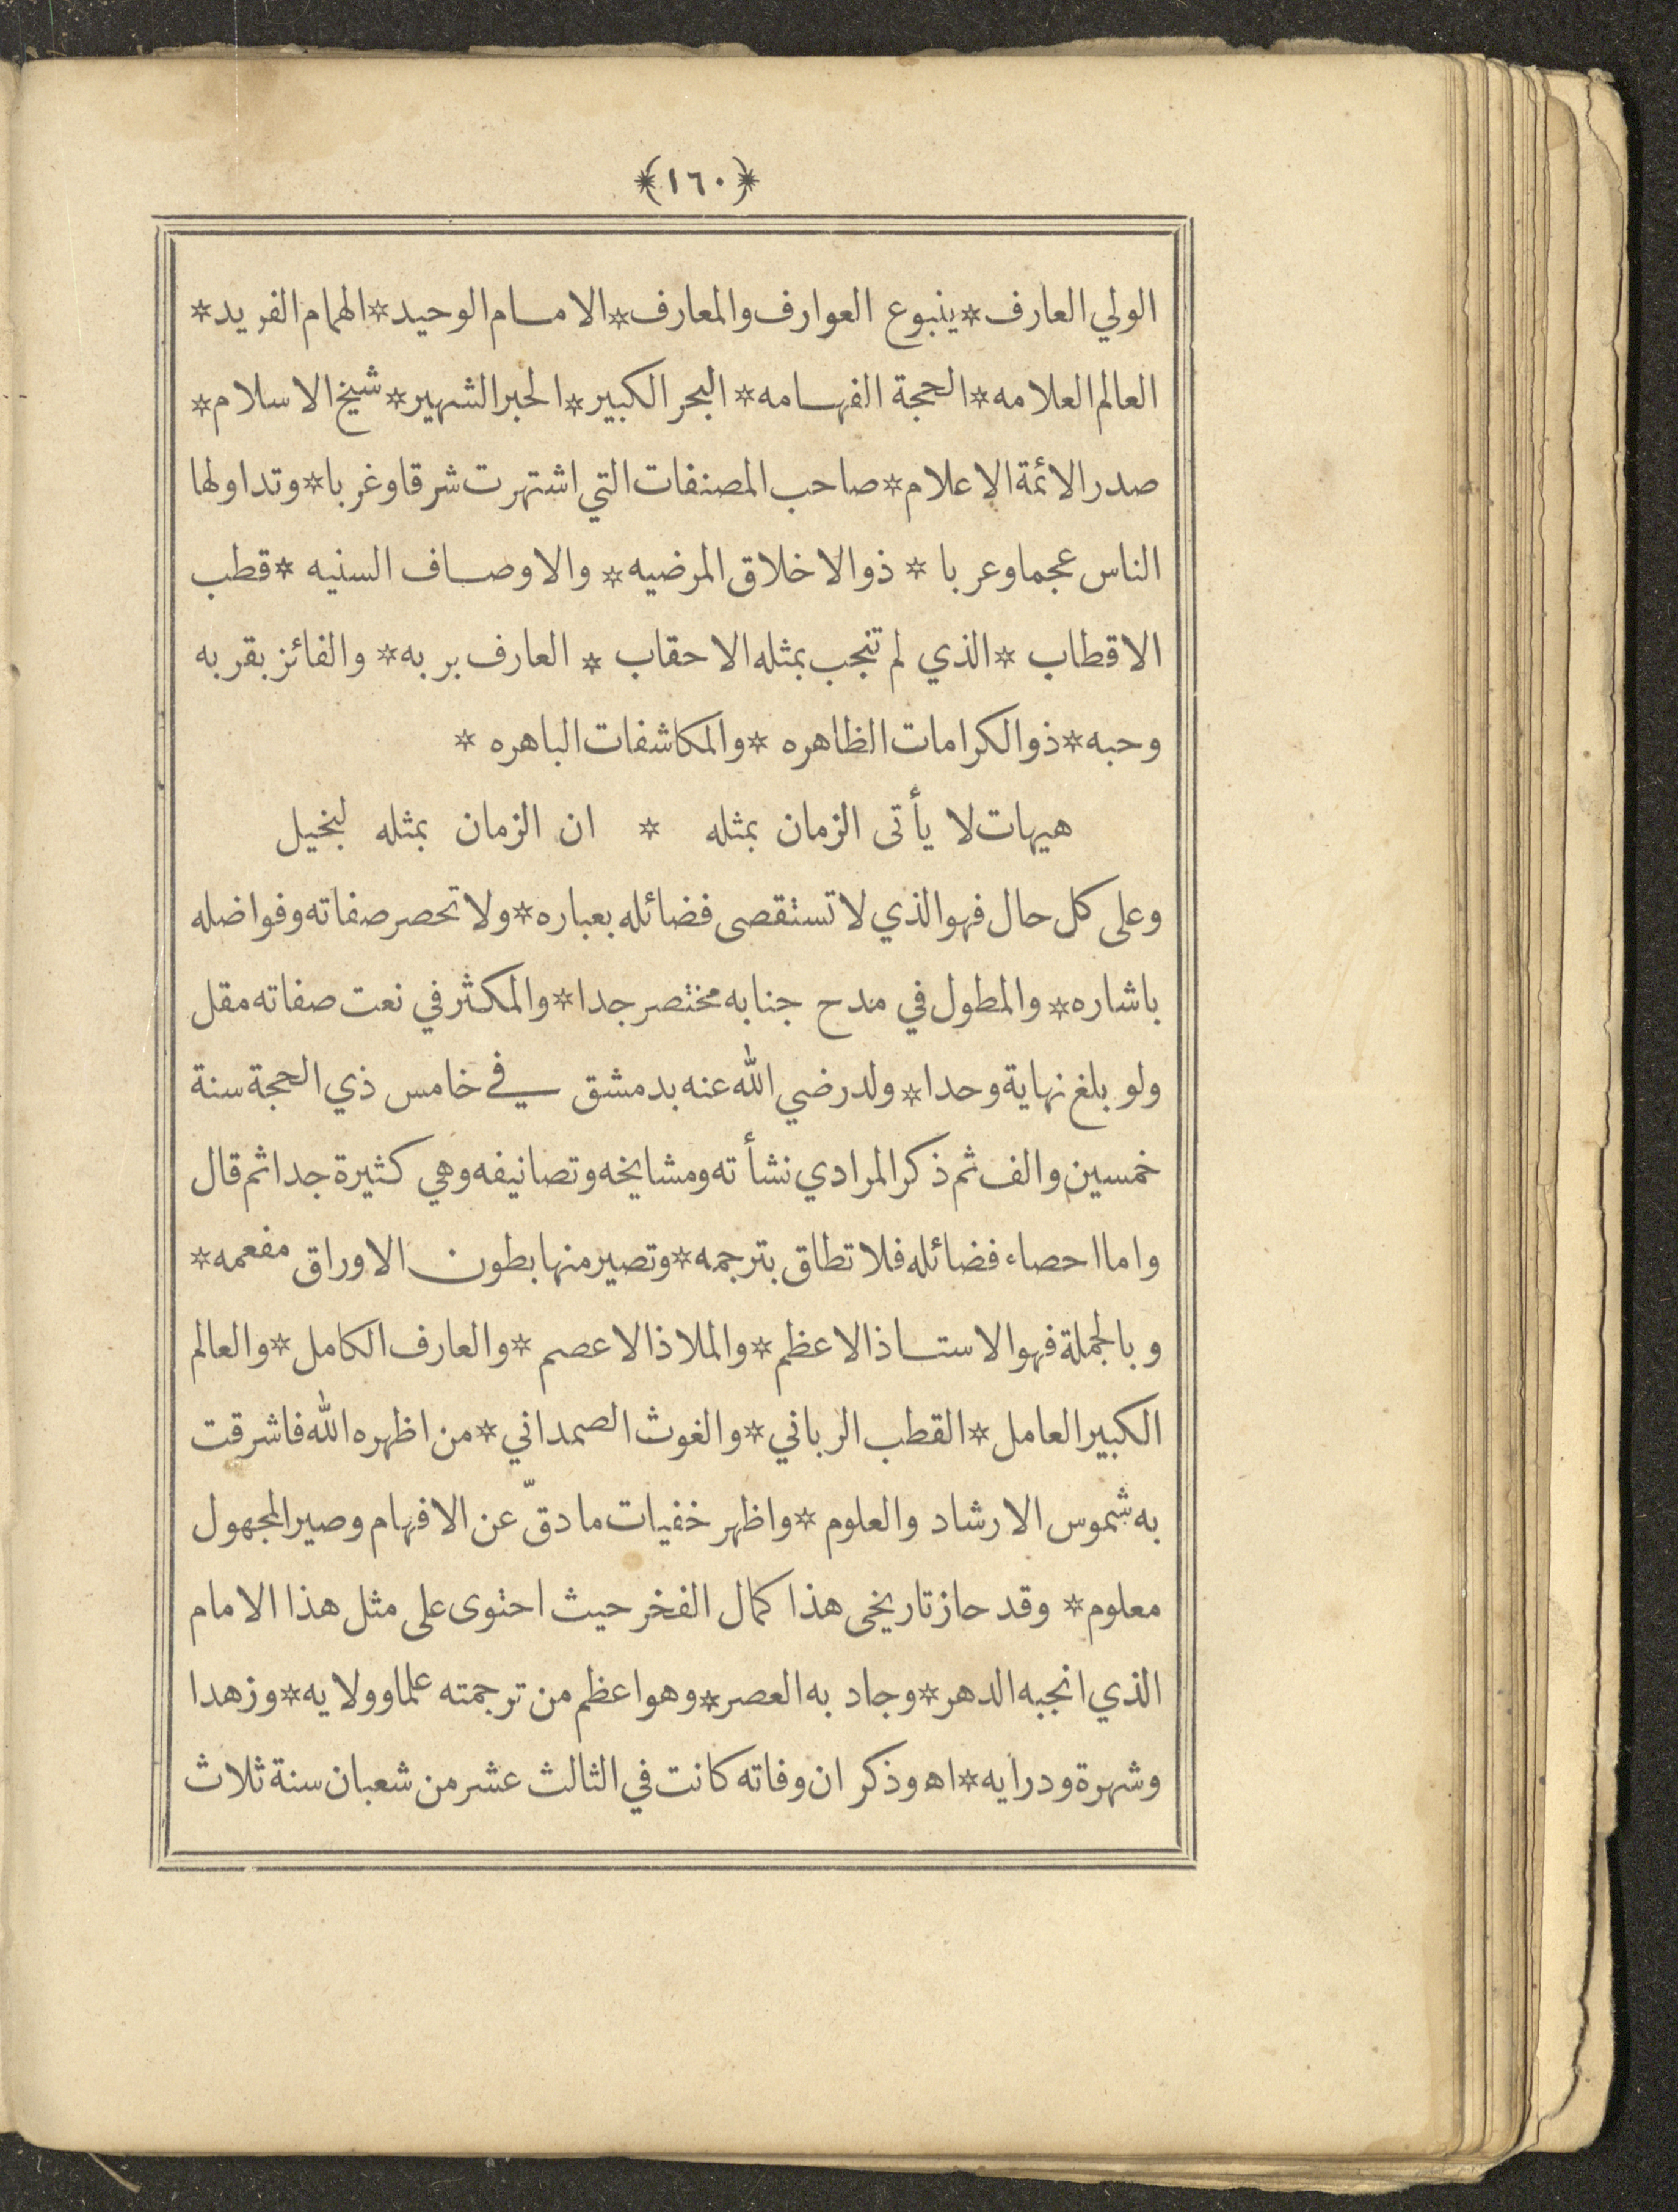 ﴿١٦٠﴾
الولي العارف * ينبوع العوارف والمعارف * الامام الوحيد * الهمام الفريد *
العالم العلامه * الحجة الفهامه * البحر الكبير * الحبر الشهير * شيخ الاسلام *
صدر الائمة الاعلام * صاحب المصنفات التي اشتهرت شرقا وغربا * وتداولها
الناس عجما وعربا * ذو الاخلاق المرضيه * والاوصاف السنيه * قطب
الاقطاب * الذي لم تنجب بمثله الاحقاب * العارف بربه * والفائز بقربه
وحبه * ذو الكرامات الظاهره * والمكاشفات الباهره *
هيهات لا يأتى الزمان بمثله * ان الزمان بمثله لبخيل
وعلى كل حال فهو الذي لا تستقصى فضائله بعباره * ولا تحصر صفاته وفواضله
باشاره * والمطول في مدح جنابه مختصر جدا * والمكثر في نعت صفاته مقل
ولو بلغ نهاية وحدا * ولد رضي الله عنه بدمشق في خامس ذي الحجة سنة
خمسين والف ثم ذكر المرادي نشأته ومشايخه وتصانيفه وهي كثيرة جدا ثم قال
واما احصاء فضائله فلا تطاق بترجمه * وتصير منها بطون الاوراق مفعمه *
وبالجملة فهو الاستاذ الاعظم * والملاذ الاعصم * والعارف الكامل * والعالم
الكبير العامل * القطب الرباني * والغوث الصمداني * من اظهره الله فاشرقت
به شموس الارشاد والعلوم * واظهر خفيات ما دقّ عن الافهام وصير المجهول
معلوم * وقد حاز تاريخى هذا كمال الفخر حيث احتوى على مثل هذا الامام
الذي انجبه الدهر * وجاد به العصر * وهو اعظم من ترجمته علما وولايه * وزهدا
وشهرة ودرايه * اه وذكر ان وفاته كانت في الثالث عشر من شعبان سنة ثلاث